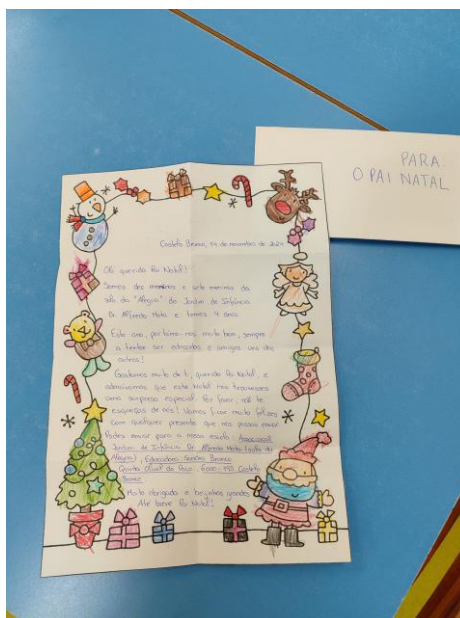 PARA:
O PAI NATAL
Castelo Branco, de novembro de 2024
Olá querido Pai Natal!
Somos dez meninos e sete meninas da
sala da "Alegria" do Jardim de Infância
Dr. Alfredo Mota e temos 4 anos.
Este ano, portámo-nos muito bem, sempre
a tentar ser educados e amigos uns dos
outros!
Gostamos muito de ti, querido Pai Natal, e
adorávamos que este Natal nos trouxesses
uma surpresa especial. Por favor, não te
esqueças de nós! Vamos ficar muito felizes
com qualquer presente que nos possas enviar.
Podes enviar para a nossa escola:
Jardim de Infância Dr. Alfredo Mota (sala da
Alegria), Educadora Sandra Branco
Quinta do 6000 - Castelo
Branco
Muito obrigado e beijinhos grandes
Até breve Pai Natal!